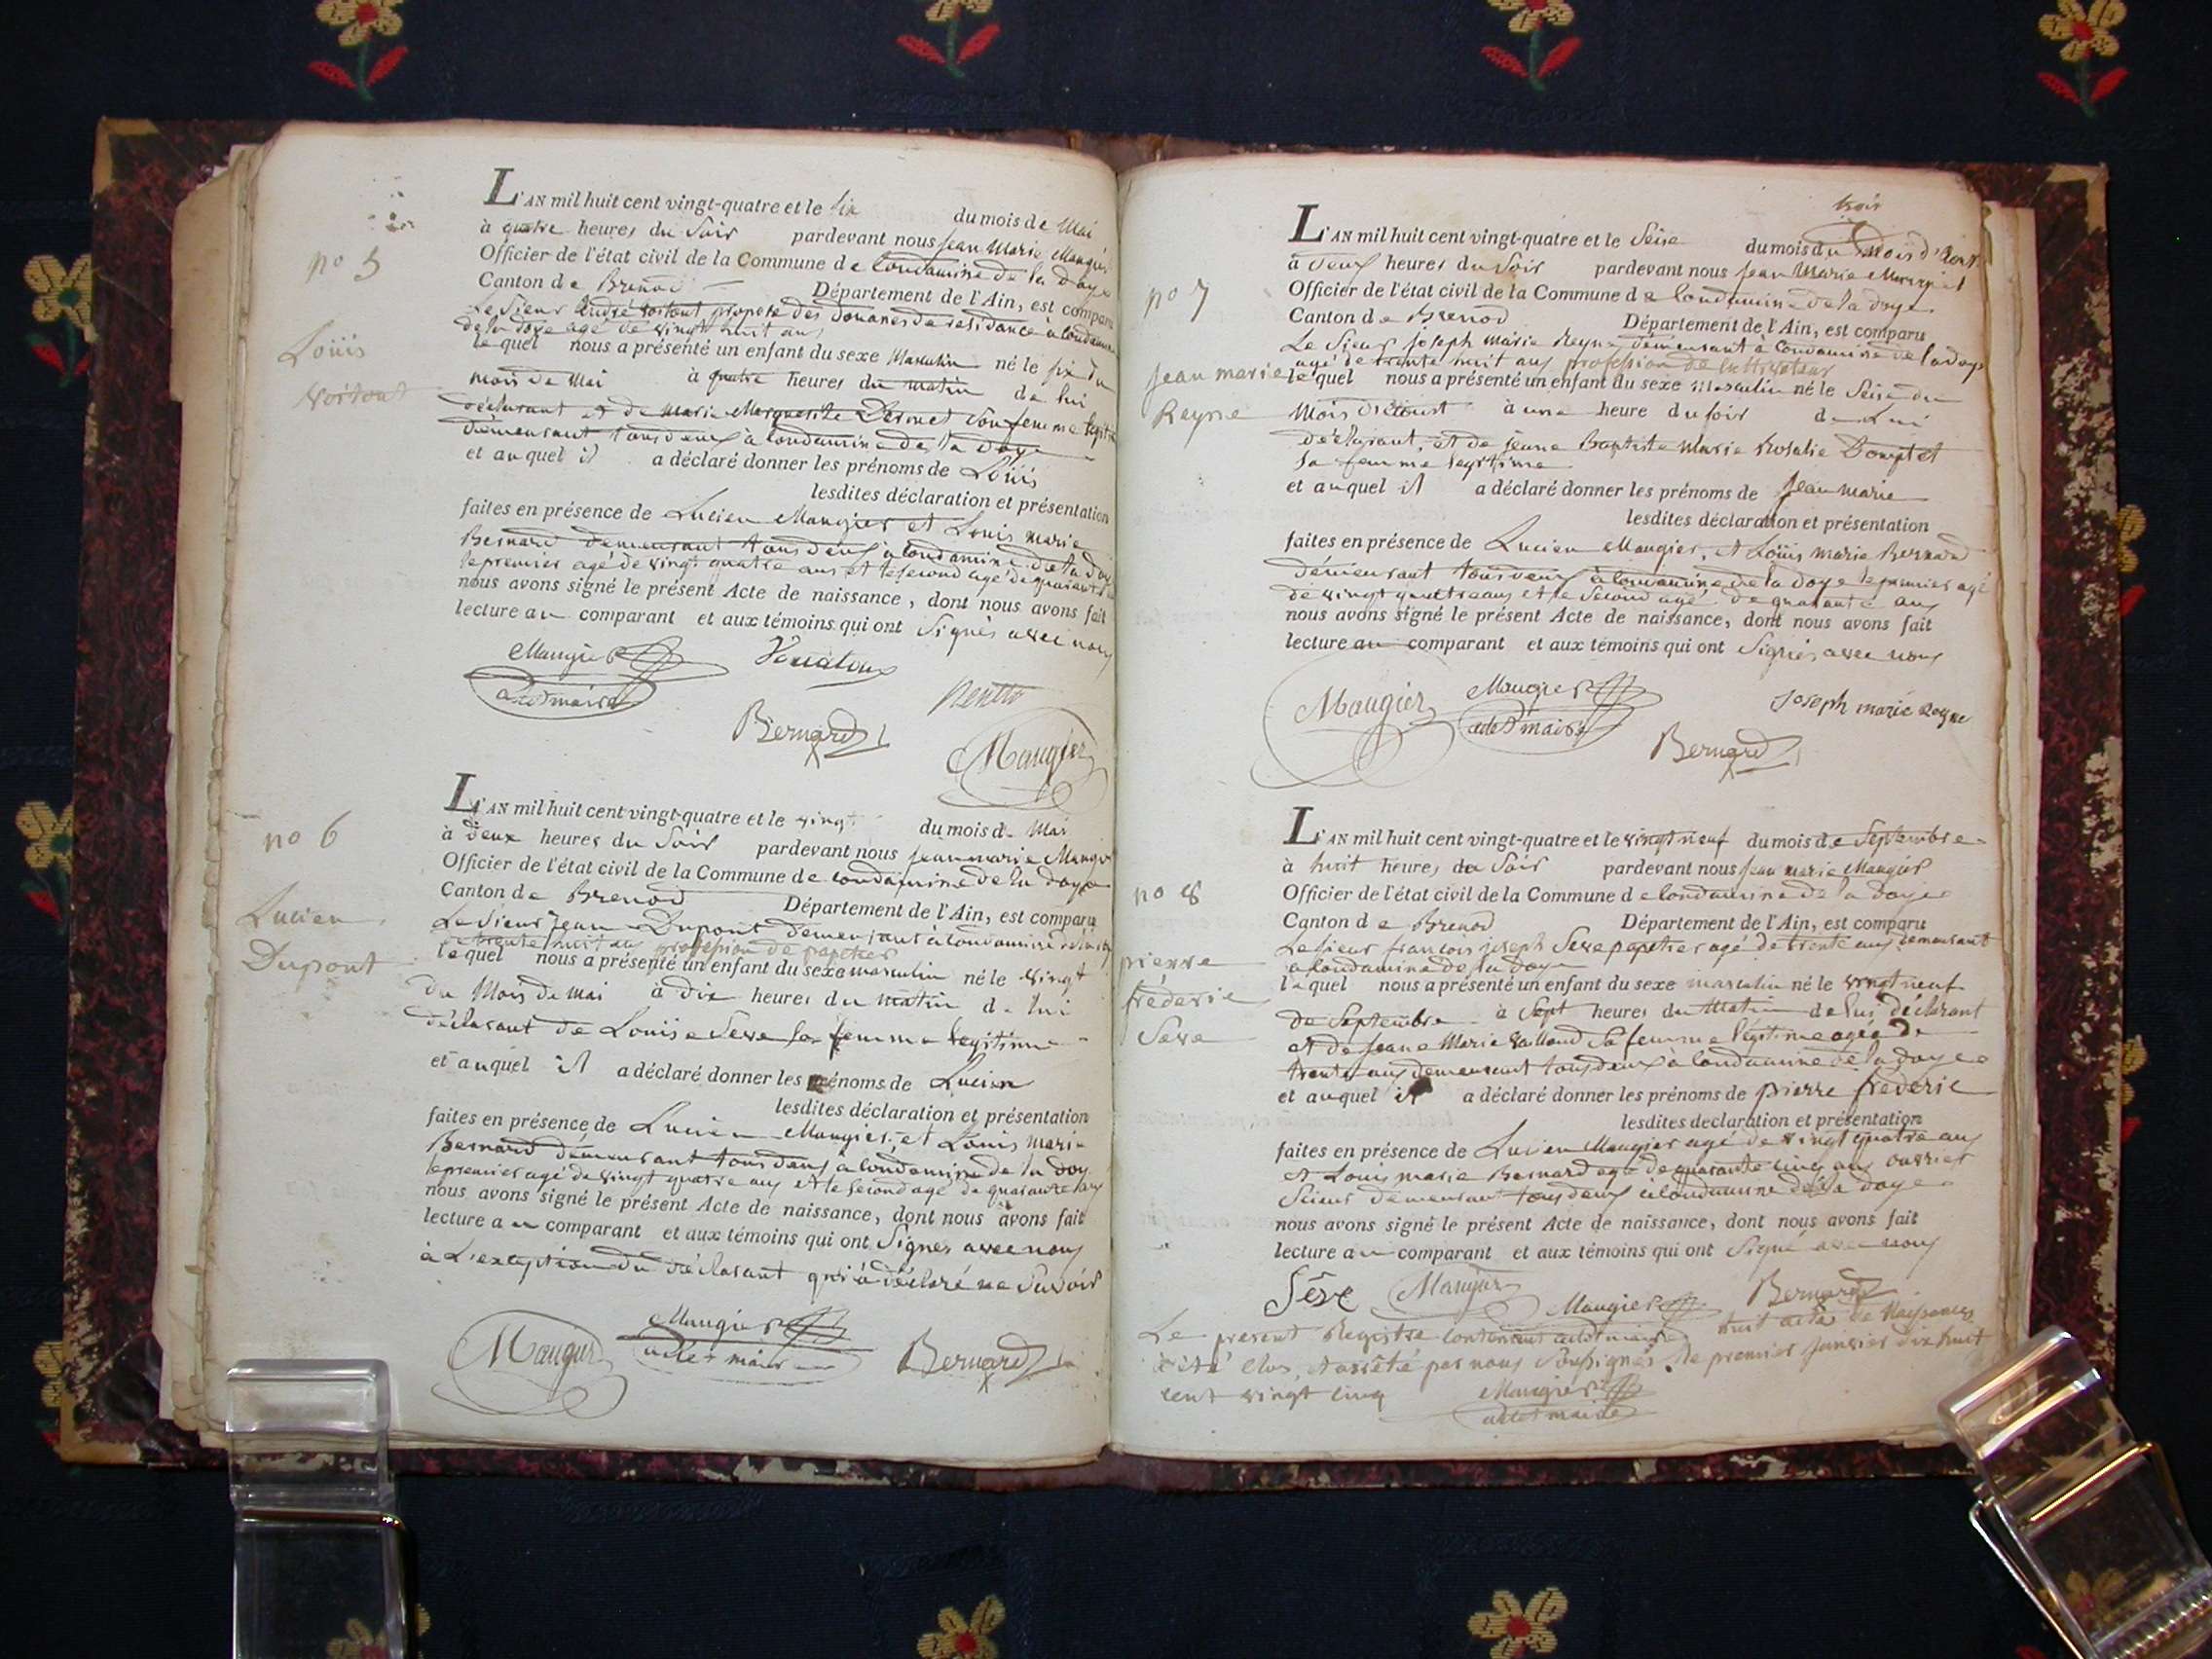 no 5
Loüis
Voitout
L'AN mil huit cent vingt-quatre et le six du mois de Mai
à quatre heures du Soir pardevant nous Jean Marie Maugier
Officier de l'état civil de la Commune de Condamine de la Doye
Canton de Brenod Département de l'Ain, est comparu
Le Sieur André Voitout préposé des douanes de résidance à Condamine
de la Doye agé de vingt huit ans
lequel nous a présenté un enfant du sexe Masculin né le six du
mois de Mai à quatre heures du matin de lui
déclarant et de Marie Marguerite Sa femme legitime
demeurant tous deux à Condamine de la Doye
et auquel il a déclaré donner les prénoms de Loüis
lesdites déclaration et présentation
faites en présence de Lucien Maugier et Louis marie
Bernard demeurant tous deux à Condamine de la Doye
le premier agé de vingt quatre ans et le second agé de quarante
nous avons signé le présent Acte de naissance, dont nous avons fait
lecture au comparant et aux témoins qui ont Signés avec nous
Maugier
adet maire
Bernard
Maugier
no 6
Lucien
Dupont
L'AN mil huit cent vingt-quatre et le vingt du mois de Mai
à deux heures du Soir pardevant nous Jean marie Maugier
Officier de l'état civil de la Commune de Condamine de la Doye
Canton de Brenod Département de l'Ain, est comparu
Le Sieur Jean Dupont demeurant à Condamine de la Doye
de trente huit ans profession de papetier
lequel nous a présenté un enfant du sexe masculin né le vingt
du Mois de mai à dix heures du matin de lui
déclarant de Louise Seve sa femme legitime
et auquel il a déclaré donner les prénoms de Lucien
lesdites déclaration et présentation
faites en présence de Lucien Maugier et Louis marie
Bernard demeurant tous deux à Condamine de la Doye
le premier agé de vingt quatre ans et le second agé de quarante ans
nous avons signé le présent Acte de naissance, dont nous avons fait
lecture au comparant et aux témoins qui ont Signés avec nous
à L'exception du déclarant qui à déclaré ne Savoir
Maugier
Maugier
adet maire
Bernard
trois
no 7
Jean marie
Reyne
L'AN mil huit cent vingt-quatre et le Seise du mois du Mois d'Aout
à deux heures du Soir pardevant nous Jean Marie Maugier
Officier de l'état civil de la Commune de Condamine de la Doye
Canton de Brenod Département de l'Ain, est comparu
Le Sieur Joseph Marie Reyne demeurant à Condamine de la Doye
agé de trente huit ans profession de cultivateur
lequel nous a présenté un enfant du sexe masculin né le Seise du
Mois d'Aoust à une heure du soir de Lui
déclarant, et de jeane Baptiste Marie Rosalie
sa femme legitime
et auquel il a déclaré donner les prénoms de Jean Marie
lesdites déclaration et présentation
faites en présence de Lucien Maugier, et Loüis marie Bernard
demeurant tous deux à Condamine de la Doye le premier agé
de vingt quatre ans et le second agé de quarante ans
nous avons signé le présent Acte de naissance, dont nous avons fait
lecture au comparant et aux témoins qui ont Signés avec nous
Maugier
Maugier
adet maire
Joseph marie Reyne
Bernard
no 8
pierre
fréderic
Seve
L'AN mil huit cent vingt-quatre et le vingt neuf du mois de Septembre
à huit heures du Soir pardevant nous Jean marie Maugier
Officier de l'état civil de la Commune de Condamine de la Doye
Canton de Brenod Département de l'Ain, est comparu
Le Sieur francois joseph Seve papetier agé de trente ans demeurant
a Condamine de la Doye
lequel nous a présenté un enfant du sexe masculin né le vingt neuf
de Septembre à Sept heures du Matin de lui déclarant
et de Jeane Marie Sa femme légitime agée de
trente ans demeurant tous deux à Condamine de la Doye
et auquel il a déclaré donner les prénoms de pierre fréderic
lesdites declaration et présentation
faites en présence de Lucien Maugier agé de vingt quatre ans
et Louis marie Bernard agé de quarante cinq ans ouvrier
Scieur demeurant tous deux à Condamine de la Doye
nous avons signé le présent Acte de naissance, dont nous avons fait
lecture au comparant et aux témoins qui ont Signé avec nous
Sève
Maugier
Maugier
adet maire
Bernard
Le present Registre contenant huit actes de Naissances
à été clos, et arrêté par nous Soussignés. le premier Janvier dix huit
cent vingt cinq
Maugier
adet maire